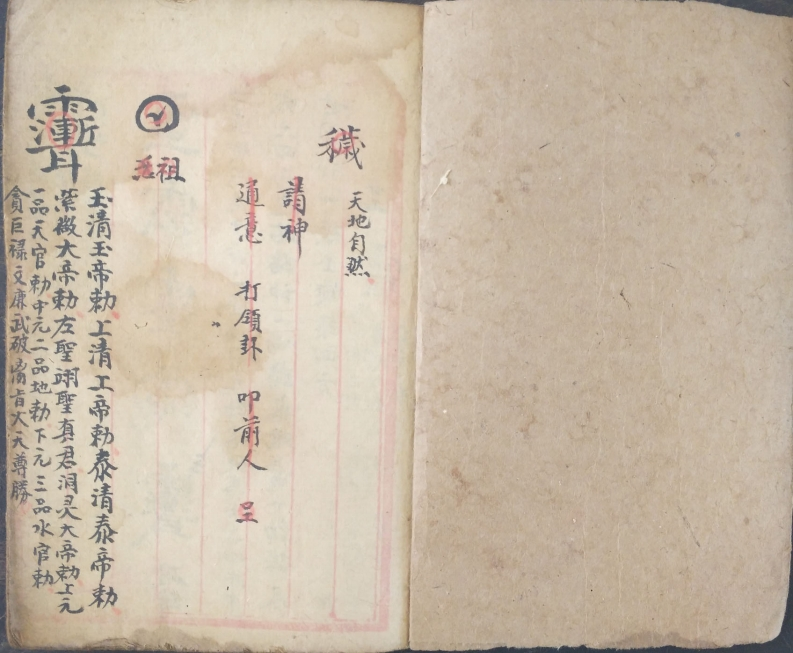 穢 天地自然
請神
通意 打領卦 叩前人 呈
祖
玉清玉帝勅上清上帝勅泰清泰帝勅
紫微大帝勅左聖翊聖真君洞灵大帝勅上元
一品天官勅中元二品地勅下元三品水官勅
貪巨禄文廉武破大天尊勝